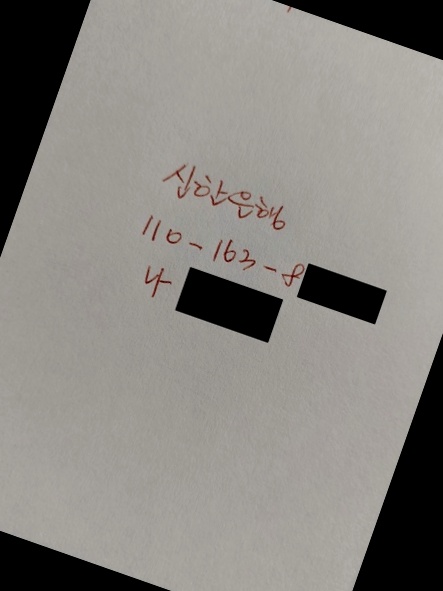 신한은행
110-163-8
나